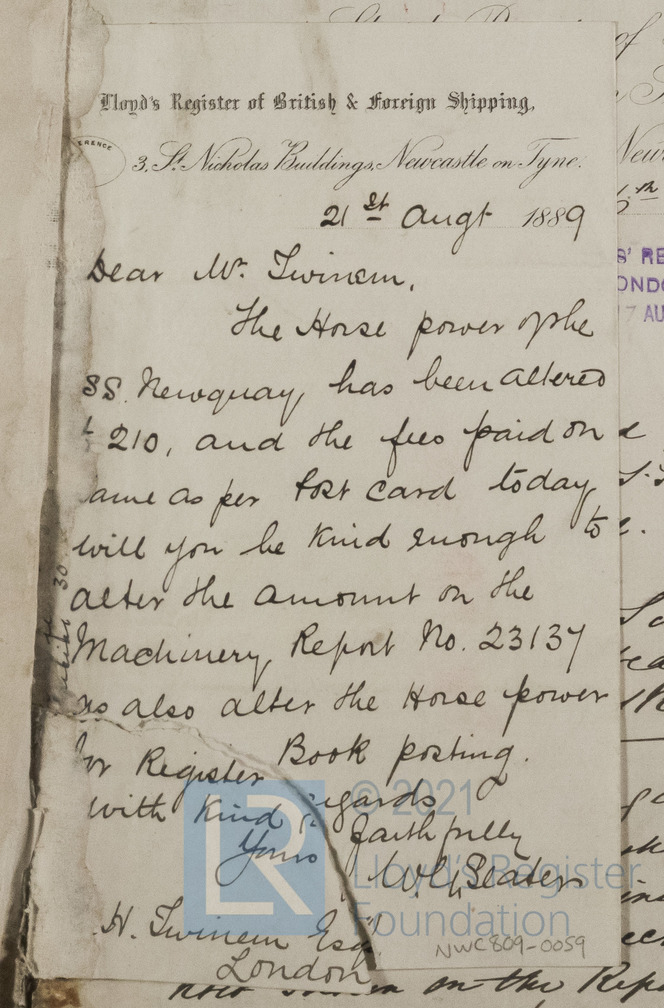 Lloyd's Register of British & Foreign Shipping,
ERENCE
3, St. Nicholas Buildings, Newcastle on Tyne.
21st Augt 1889
Dear Mr. Twinem,
The Horse power of the
SS. Newquay, has been altered
210, and the fees paid on
ame as per Post card today
will you be kind enough to
alter the amount on the
Machinery Report No. 23137
as also alter the Horse power
for Register Book posting.
with kind regards
Yours faithfully
Slater
H. Twinem Esq
London
30
© 2021
LR
Lloyd's Register
Foundation
NWC809-0059
of
th
S' RE
OND
7 AU
on the Rep